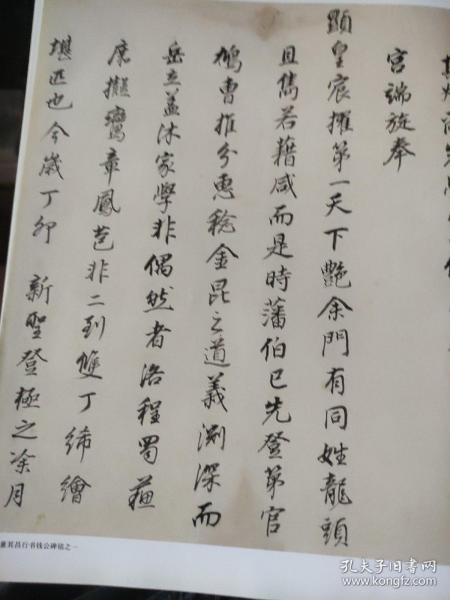 宫端旋奉
顯皇宸擢第一天下艷余門有同姓龍頭
且雋若籍咸而是時藩伯已先登第官
鳩曹推分惠稔金昆之道義淵深而
岳立蓋沐家學非偶然者洛程蜀蘇
席攡鸞章鳳苞非二到雙丁絺繪
堪匹也今歲丁卯 新聖登極之涂月
董其昌行书钱公碑铭之一
孔夫子旧书网